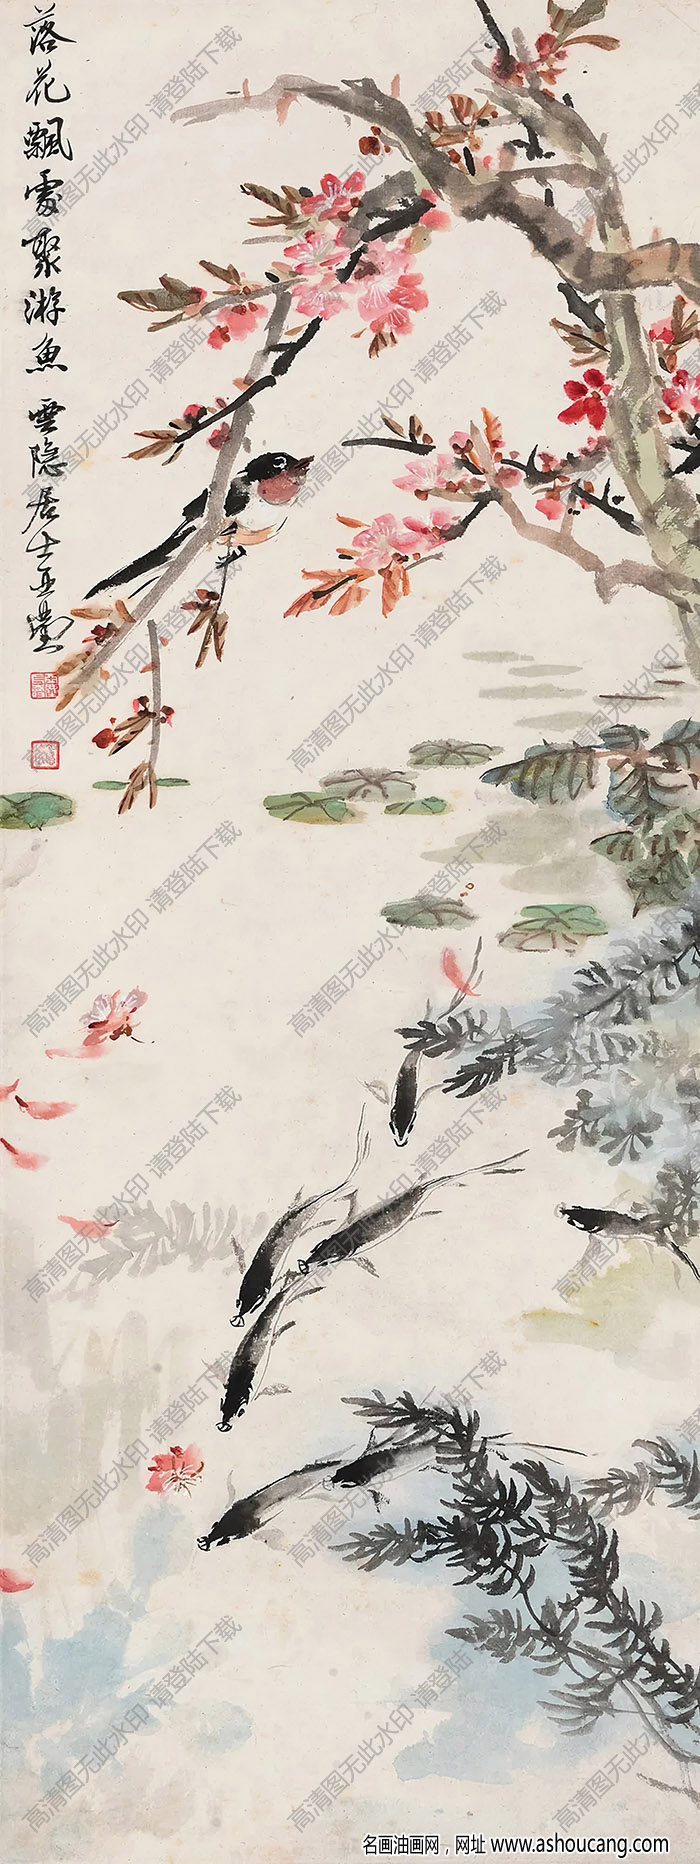 落花飘處聚游魚 雲隐居士亚塵
高清图无此水印 请登陆下载
名画油画网，网址 www.ashoucang.com